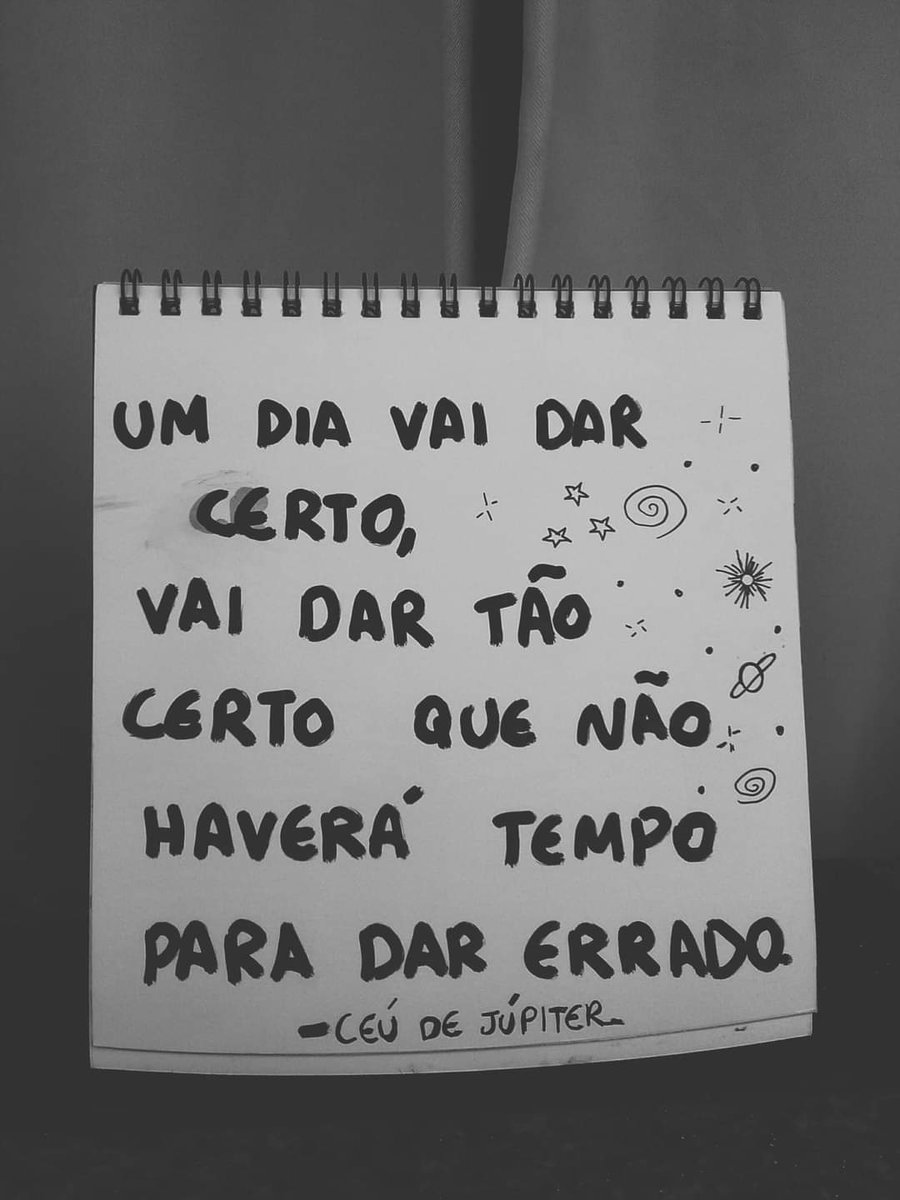 UM DIA VAI DAR
CERTO,
VAI DAR TÃO
CERTO QUE NÃO
HAVERÁ TEMPO
PARA DAR ERRADO.
-CEÚ DE JÚPITER-